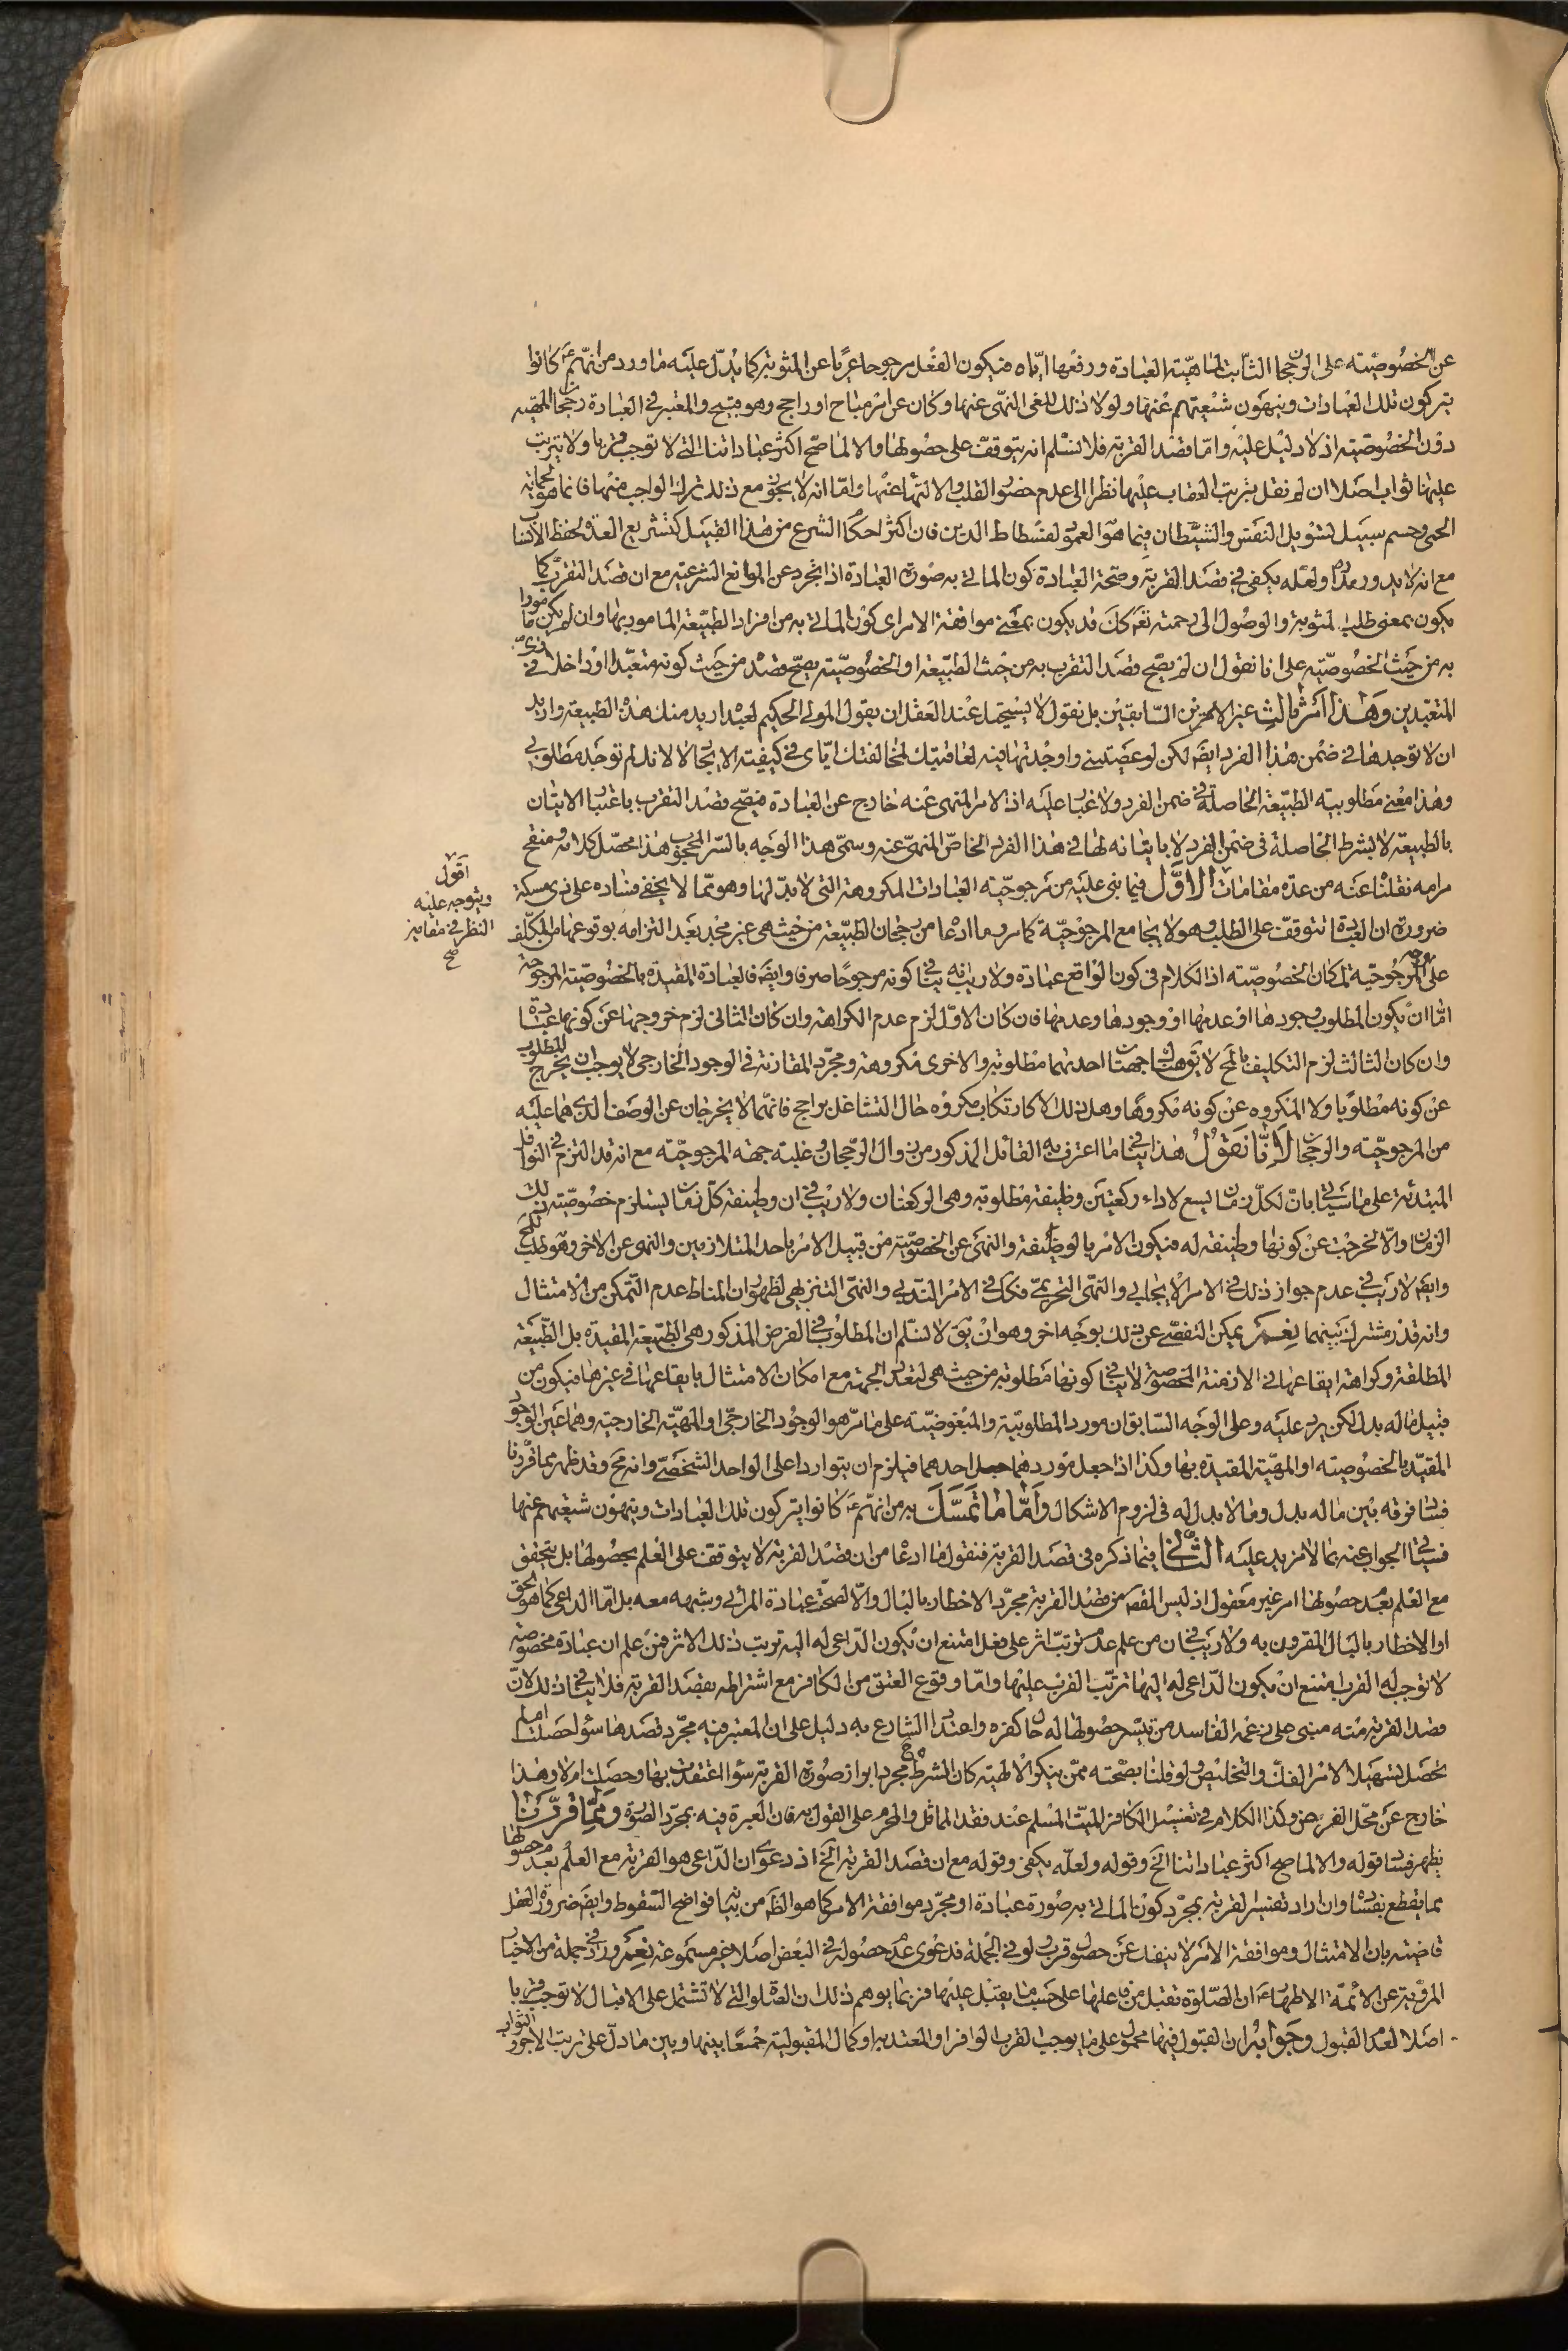 عن الخصوصيته على الرجحان الثابت لماهية العبادة ورفعها اياه فيكون الفعل مرجوحا عريا عن المثوبة كما يدل عليه ما ورد من انهم ع كانوا
يتركون تلك العبادات وينهون شيعتهم عنها ولولا ذلك للغى النهى عنها وكان عن امر مباح او راجح وهو قبيح والمعتبر في العبادة رجحان المهية
دون الخصوصية اذ لا دليل عليه واما قصد القربة فلا نسلم انه يتوقف على حصولها والا لما صح اكثر عباداتنا التي لا توجب قربا ولا يترتب
عليها ثواب اصلا ان لم نقل بترتب العقاب عليها نظرا الى عدم حضور القلب والالتهاء عنها واما انه لا يجوز مع ذلك ترك الواجب منها فانما هو لحماية
الحمى وحسم سبيل تسويل النفس والشيطان فيما هو العمود لفسطاط الدين فان اكثر احكام الشرع من هذا القبيل كتشريع العدة لحفظ الانساب
مع انه لا يدور مداره ولعله يكفى في قصد القربة وصحة العبادة كون الماتى به صورة العبادة اذا تجرد عن الموانع الشرعية مع ان قصد التقرب كما
يكون بمعنى طلب المثوبة والوصول الى رحمته تعم كك قد يكون بمعنى موافقة الامر اى كون الماتى به من افراد الطبيعة المامور بها وان لم يكن مامورا
به من حيث الخصوصية على انا نقول ان لم يصح قصد التقرب به من حيث الطبيعة او الخصوصية يصح قصده من حيث كونه متعبدا او داخلا في زى
المتعبدين وهذا امر ثالث غير الامرين السابقين بل نقول لا يستحيل عند العقل ان يقول المولى الحكيم لعبده اريد منك هذه الطبيعة واريد
ان لا توجدها في ضمن هذا الفرد ايضا لكن لو عصيتنى واوجدتها فيه لعاقبتك لمخالفتك اياى في كيفية الايجاد لا لانك لم توجد مطلوبى
وهذا معنى مطلوبية الطبيعة الحاصلة في ضمن الفرد ولا غبار عليه اذ الامر المنهى عنه خارج عن العبادة فيصح قصد التقرب باعتبار الاتيان
بالطبيعة لا بشرط الحاصلة في ضمن الفرد لا باتيانه لها في هذا الفرد الخاص المنهى عنه وسمى هذا الوجه بالسر المحجوب هذا محصل كلامه ومنقح
مرامه نقلنا عنه من عدة مقامات الاول فيما بنى عليه من مرجوحية العبادات المكروهة التى لا بدل لها وهو مما لا يخفى فساده على ذى مسكة
اقول
ويتوجه عليه
النظر في مقامين
صح
ضرورة ان العبادة تتوقف على الطلب وهو لا يجامع المرجوحية كما مر وما ادعاه من رجحان الطبيعة من حيث هى غير مجد بعد التزامه بوقوعها من المكلف
على المرجوحية لمكان الخصوصية اذ الكلام في كون الواقع عبادة ولا ريب انه ينافى كونه مرجوحا صرفا وايضا فالعبادة المقيدة بالخصوصية المرجوحة
اما ان يكون المطلوب وجودها او عدمها او وجودها وعدمها فان كان الاول لزم عدم الكراهة وان كان الثانى لزم خروجها عن كونها عبادة
وان كان الثالث لزم التكليف بالمح لا يق هناك جهتان احدهما مطلوبة والاخرى مكروهة ومجرد المقارنة في الوجود الخارجى لا يوجب ان يخرج المطلوب
عن كونه مطلوبا ولا المكروه عن كونه مكروها وهل ذلك الا كارتكاب مكروه حال التشاغل براجح فانهما لا يخرجان عن الوصف الذى هما عليه
من المرجوحية والرجحان لانا نقول هذا ينافى ما اعترف به القائل المذكور من زوال الرجحان وغلبة جهة المرجوحية مع انه قد التزم في النوافل
المبتدئة على ما سياتى بان لكل زمان يسع لاداء ركعتين وظيفة مطلوبة وهى الركعتان ولا ريب في ان وظيفة كل زمان يستلزم خصوصية ذلك
الزمان والا لخرجت عن كونها وظيفة له فيكون الامر بالوظيفة والنهى عن الخصوصية من قبيل الامر باحد المتلازمين والنهى عن الاخر وهو طلب للمح
وايضا لا ريب في عدم جواز ذلك في الامر الايجابى والنهى التحريمى فكك في الامر الندبى والنهى التنزيهى لظهور ان المناط عدم التمكن من الامتثال
وانه قدر مشترك بينهما نعم يمكن التفصى عن ذلك بوجه اخر وهو ان يق لا نسلم ان المطلوب في الفرض المذكور هى الطبيعة المقيدة بل الطبيعة
المطلقة وكراهة ايقاعها في الازمنة المخصوصة لا ينافى كونها مطلوبة من حيث هى لتعدد الجهة مع امكان الامتثال بايقاعها في غيرها فيكون من
قبيل ما له بدل لكن يرد عليه وعلى الوجه السابق ان مورد المطلوبية والمبغوضية على ما مر هو الوجود الخارجى او المهية الخارجية وهما عين الوجود
المقيد بالخصوصية او المهية المقيدة بها وكذا اذا جعل موردهما احدهما فيلزم ان يتواردا على الواحد الشخصى وانه مح وقد ظهر بما قررنا
فساد فرقه بين ما له بدل وما لا بدل له في لزوم الاشكال واما ما تمسك به من انهم ع كانوا يتركون تلك العبادات وينهون شيعتهم عنها
فسياتى الجواب عنه بما لا مزيد عليه الثانى فيما ذكره في قصد القربة فنقول ما ادعاه من ان قصد القربة لا يتوقف على العلم بحصولها بل يتحقق
مع العلم بعدم حصولها امر غير معقول اذ ليس المقص من قصد القربة مجرد الاخطار بالبال والا لصحة عبادة المرائى وشبهه معه بل اما الداعى كما هو الحق
او الاخطار بالبال المقرون به ولا ريب في ان من علم عدم ترتب اثر على فعل امتنع ان يكون الداعى له اليه ترتب ذلك الاثر فمن علم ان عبادة مخصوصة
لا توجب له القرب امتنع ان يكون الداعى له اليها ترتب القرب عليها واما وقوع العتق من الكافر مع اشتراطه بقصد القربة فلا ينافى ذلك لان
قصد القربة منه مبنى على زعمه الفاسد من تيسر حصولها له حال كفره واعتداد الشارع به دليل على ان المعتبر فيه مجرد قصدها سواء حصلت ام لم
تحصل تسهيلا لامر الفك والتخليص ولو قلنا بصحته ممن ينكر الالهية كان الشرط مجرد ابراز صورة القربة سواء اعتقدت بها وحصلت ام لا وهذا
خارج عن محل الفرض وكذا الكلام في تغسيل الكافر الميت المسلم عند فقد المماثل والمحرم على القول به فان العبرة فيه بمجرد الصورة ومما قررنا
يظهر فساد قوله والا لما صح اكثر عباداتنا الخ وقوله ولعله يكفى وقوله مع ان قصد القربة الخ اذ دعوى ان الداعى هو القربة مع العلم بعدم حصولها
مما يقطع بفساده وان اراد تفسير القربة بمجرد كون الماتى به صورة عبادة او مجرد موافقة الامر كما هو الظ من بيانه فواضح السقوط وايضا ضرورة العقل
قاضية بان الامتثال وموافقة الامر لا ينفك عن حصول قرب ولو في الجملة فدعوى عدم حصوله في البعض اصلا غير مسموعة نعم ورد في جملة من الاخبار
المروية عن الائمة الاطهار ع ان الصلوة تقبل من فاعلها على حسب ما يقبل عليها فربما يوهم ذلك ان الصلوة التى لا تشتمل على الاقبال لا توجب قربا
اصلا لعدم القبول وجوابه ان القبول فيها محمول على ما يوجب القرب الوافر او المعتد به او كمال المقبولية جمعا بينها وبين ما دل على ترتب الاجور والثواب